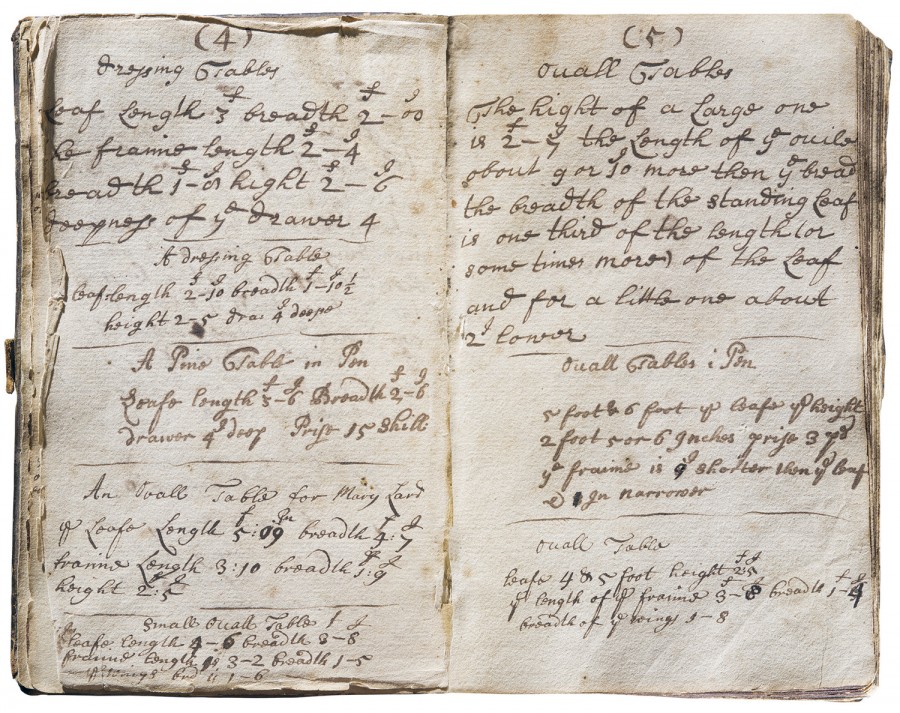 (4)
dressing Tables
leaf Length 3 f breadth 2 f – 00 J
frame length 2 f – 4 J
breadth 1 f – 0 J hight 2 f – 6 J
deepness of ye drawer 4
A dressing Table
leaf length 2 – 10 breadth 1 – 10 1/2
height 2 – 5 dra 4 J deepe
A Pine Table in Pen
Leafe length 3 f – 6 J Breadth 2 f – 6 J
drawer 4 J deep Prise 15 shill
An Ouall Table for Mary Lard
ye Leafe Length 5 f : 09 In breadth 4 f : 7 J
frame Length 3 : 10 breadth 1 : 9
height 2 f : 5 J
Small Ouall Table f J
Leafe length 4 – 6 breadth 3 – 8
frame length is 3 – 2 breadth 1 – 5
is 1 – 6
(5)
Ouall Tables
The hight of a Large one
is 2 f – 7 J the Length of ye ouile
about 9 or 10 J more then ye bread
the breadth of the standing Leaf
is one third of the length (or
some times more) of the Leaf
and for a little one about
2 J lower
Ouall Tables i Pen
5 foot & 6 foot ye leafe ye height
2 foot 5 or 6 Jnches prise 3 pd
ye fraime is 9 J shorter then ye leaf
& 1 Jn narrower
Ouall Table
leafe 4 & 5 foot height 2 f 5 J
ye length of ye frame 3 f – 8 J breadth 1 f – 4 J
breadth of ye wings 1 – 8